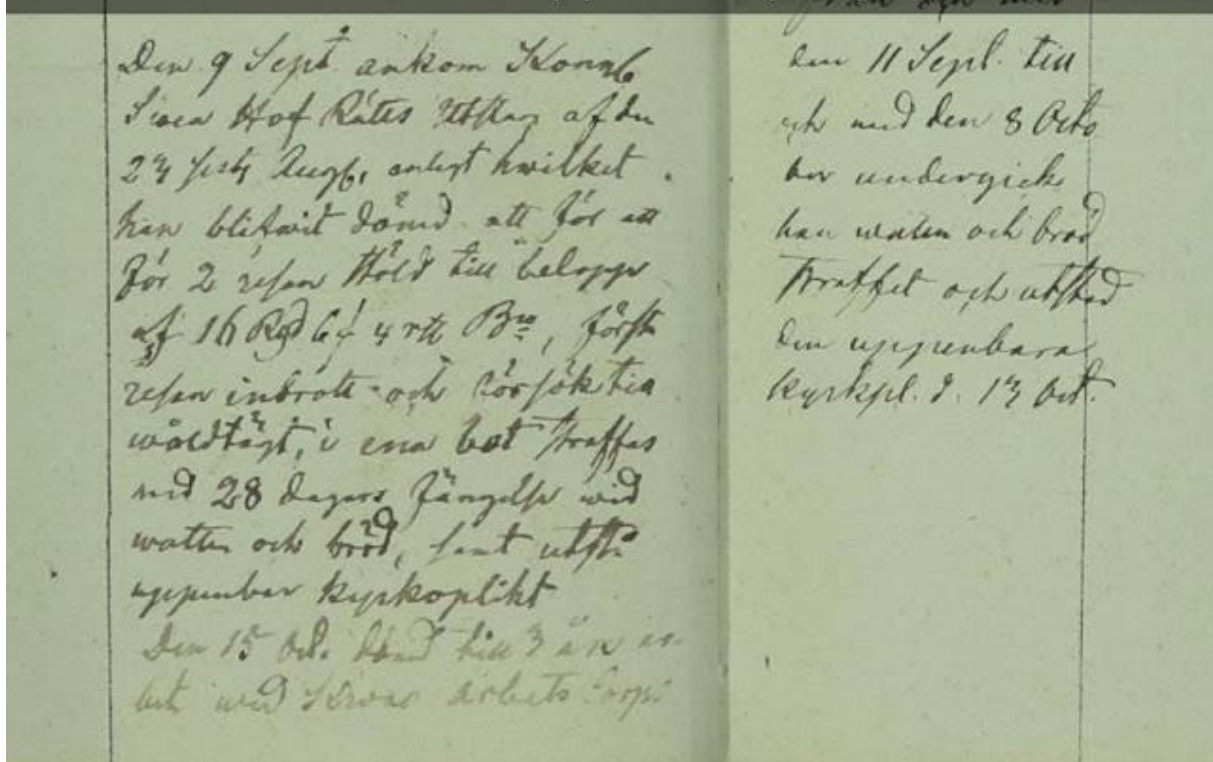 Den 9 Sept ankom Kongl
Svea Hof Rätts Utslag af den
23 sistl Aug, enligt hwilket
han blifwit dömd att för att
för 2 resan stöld till belopp
af 16 Rgd 6 f 4 rst Bco, första
resan inbrott och försök till
wåldtägt, i ena bot straffas
med 28 dagars fängelse wid
watten och bröd, samt utstå
uppenbar kyrkoplikt
Den 15 Oct. dömd till 3 års ar-
bete wid Kron arbets Corps
den 11 Sept. till
och med den 8 Octo
ber undergick
han watten och bröd
straffet och utstod
den uppenbara
kyrkpl. d. 13 Oct.